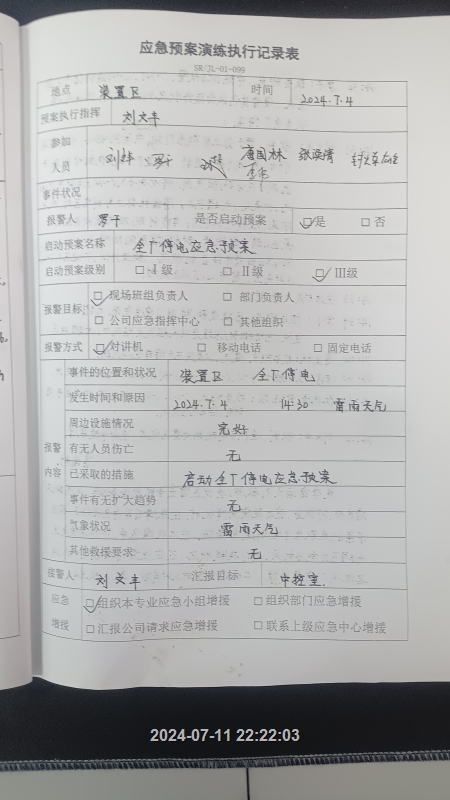 应急预案演练执行记录表
SR/JL-01-099
地点 装置区 时间 2024.7.4
预案执行指挥 刘文丰
参加人员 罗干 唐国林 张淏清
事件状况
报警人 罗干 是否启动预案 ☑是 □否
启动预案名称 全厂停电应急预案
启动预案级别 □Ⅰ级 □Ⅱ级 ☑Ⅲ级
报警目标 ☑现场班组负责人 □部门负责人
□公司应急指挥中心 □其他组织
报警方式 ☑对讲机 □移动电话 □固定电话
报警内容
事件的位置和状况 装置区 全厂停电
发生时间和原因 2024.7.4 14:30 雷雨天气
周边设施情况 完好
有无人员伤亡 无
已采取的措施 启动全厂停电应急预案
事件有无扩大趋势 无
气象状况 雷雨天气
其他救援要求 无
接警人 刘文丰 汇报目标 中控室
应急增援 ☑组织本专业应急小组增援 □组织部门应急增援
□汇报公司请求应急增援 □联系上级应急中心增援
2024-07-11 22:22:03